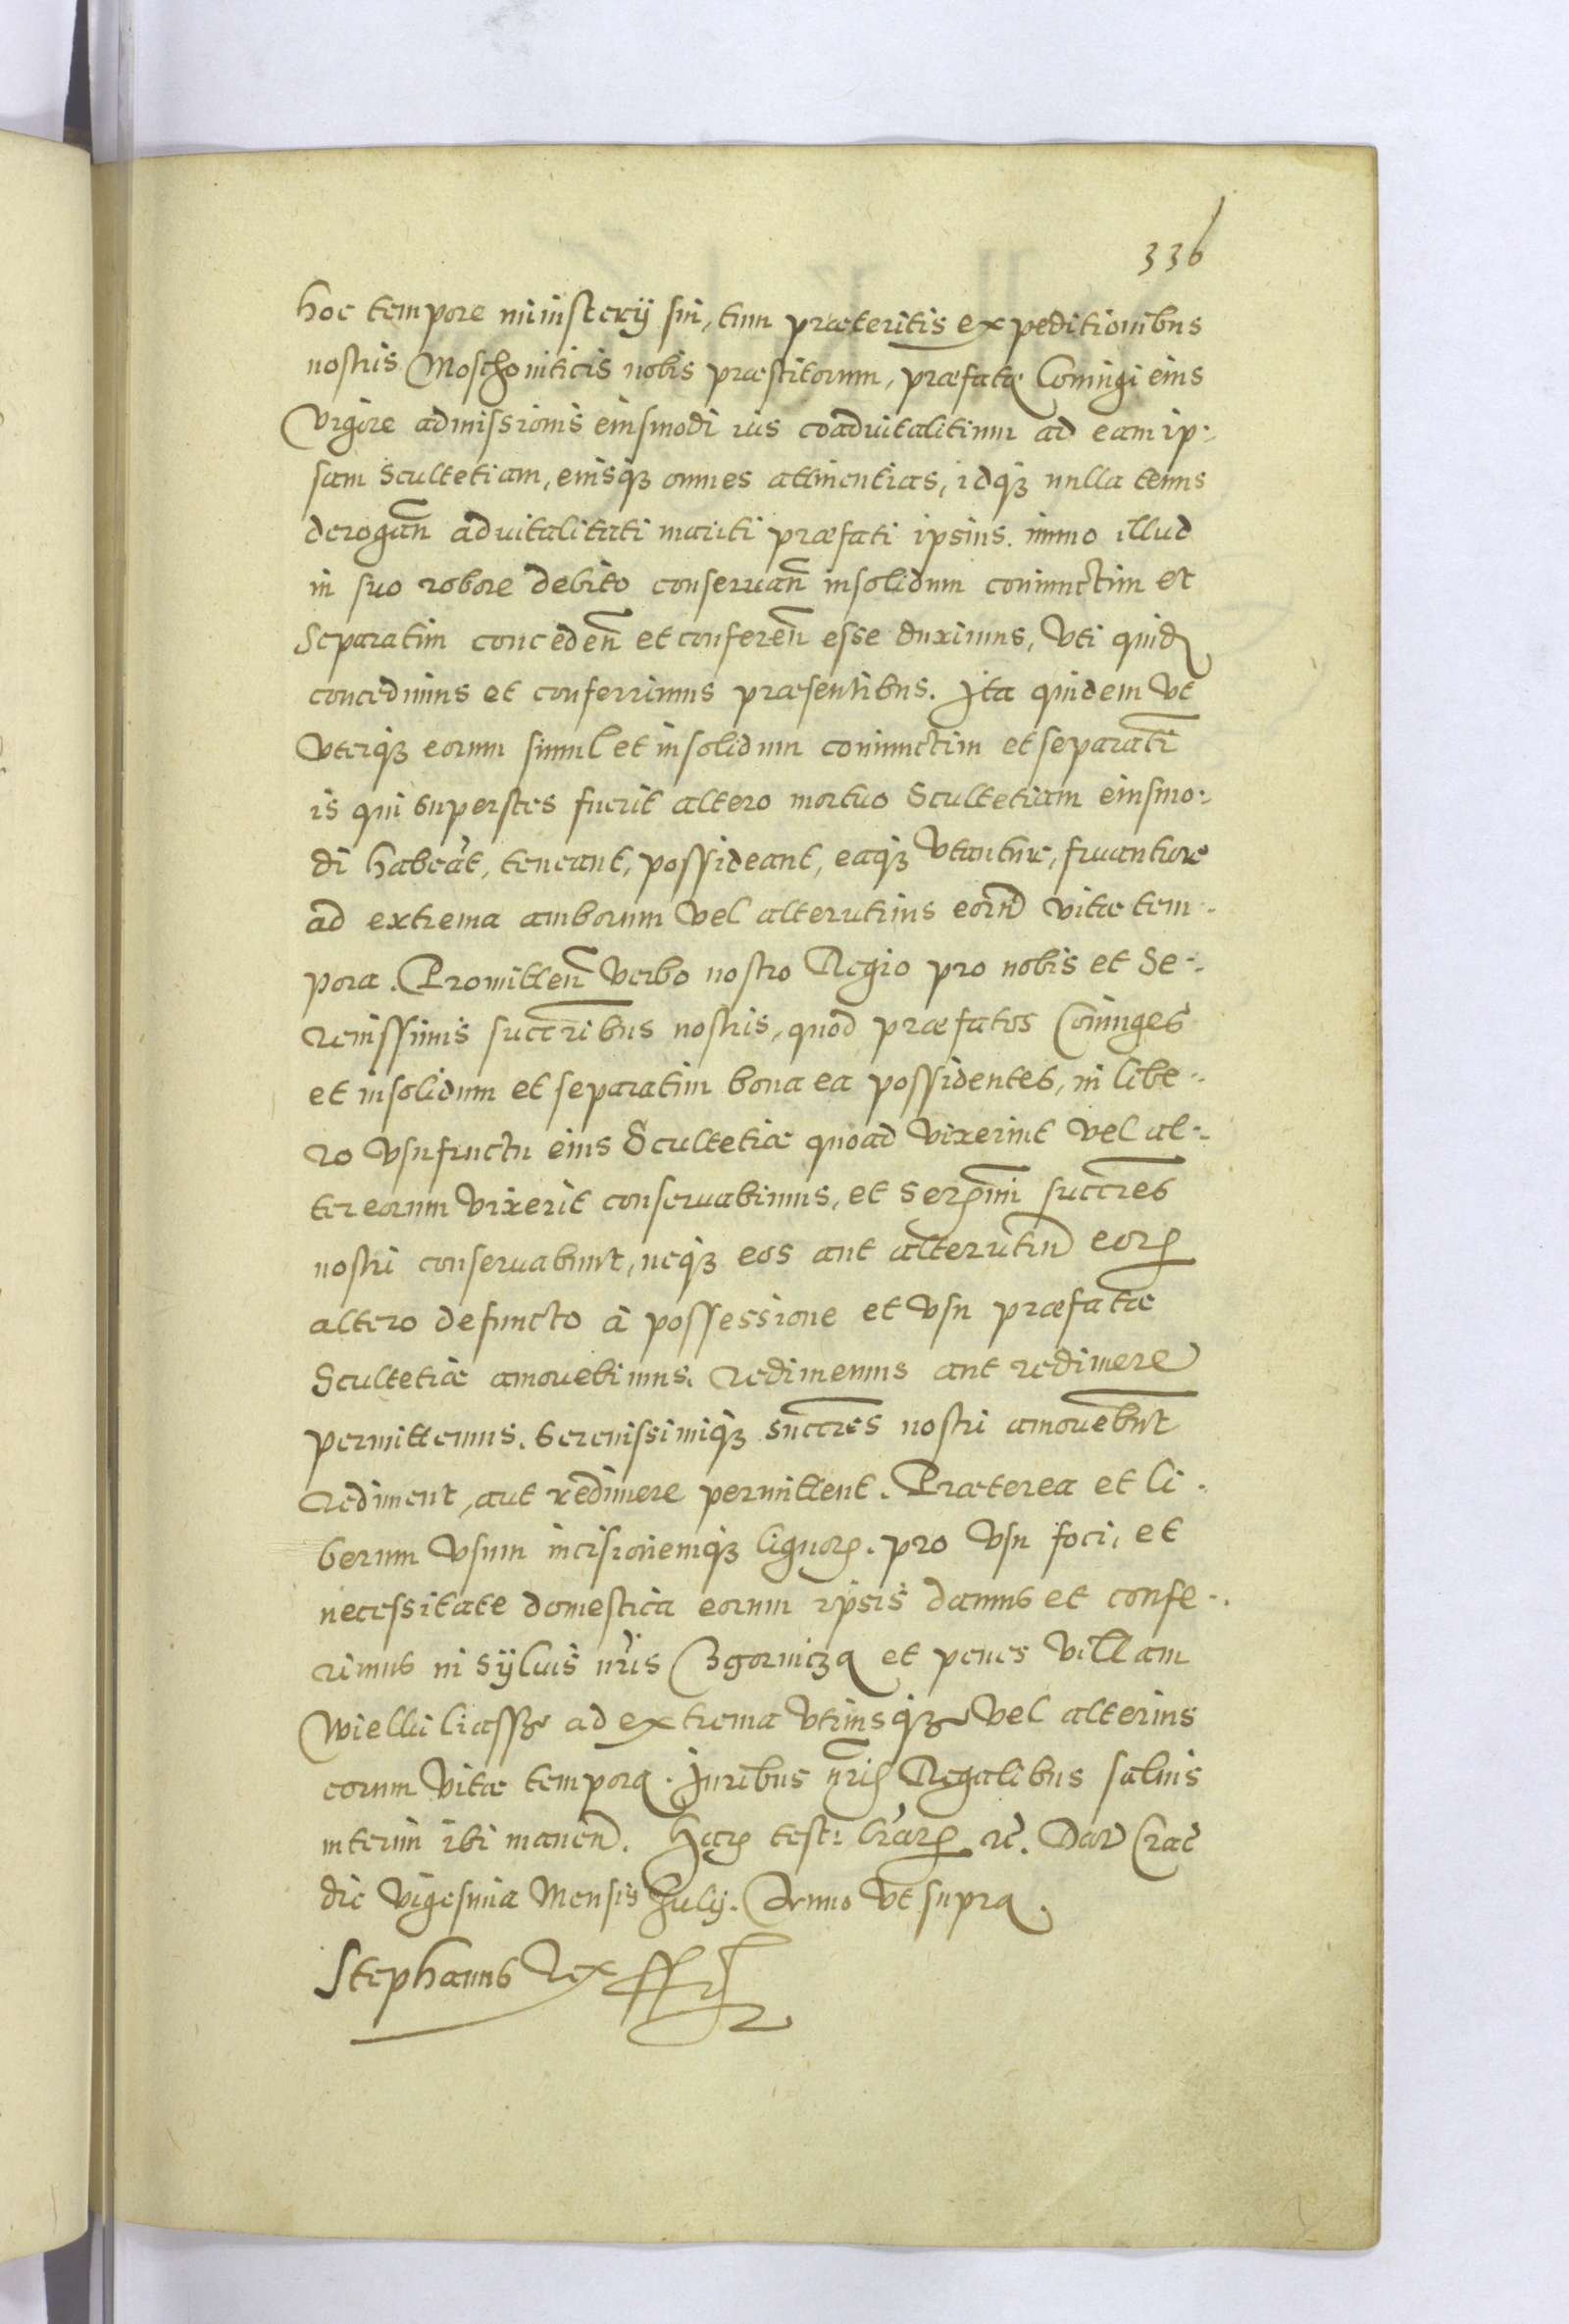 336
hoc tempore ministerij sui, tum præteritis expeditionibus
nostris Moschoviticis nobis præstitorum, præfatæ Coniugi eius
vigore admissionis eiusmodi ius coadvitalitium ad eam ip-
sam Scultetiam, eiusqꝫ omnes attinentias, idqꝫ nulla tenus
derogan̄ advitalitati mariti præfati ipsius. immo illud
in suo robore debito conseruan̄ insolidum coniunctim et
Separatim conceden̄ et conferen̄ esse duximus, Vti quidꝫ
concedimus et conferrimus præsentibus. Ita quidem vt
vterqꝫ eorum simul et insolidum coniunctim et separati̅
is qui superstes fuerit altero mortuo Scultetiam eiusmo-
di habea̅t, teneant, possideant, eaqꝫ vtantur, fruantur
ad extrema amborum vel alterutrius eorūd vitæ tem-
pora. Promitten̄ verbo nostro Regio pro nobis et Se-
renissimis succr̄ibus nostris, quod præfatos Coniuges
et insolidum et separatim bona ea possidentes, in libe-
ro vsufructu eius Scultetiæ quoad vixerint vel al-
ter eorum vixerit conseruabimus, et Serꝫmi succr̄es
nostri conseruabunt, neqꝫ eos aut alterutrū eorꝫ
altero defuncto à possessione et vsu præfatæ
Scultetiæ amouebimus. redimemus aut redimere
permittemus. Serenissimiqꝫ succr̄es nostri amoueb̅nt
rediment, aut redimere permittent. Præterea et li-
berum vsum incisionemqꝫ lignorꝫ. pro vsu foci, et
necessitate domestica eorum ipsis damus et confe-
rimus in syluis nr̄is Zgornicza et penes villam
Wielliu liassz ad extrema vtriusqꝫ vel alterius
eorum vitæ tempora. Iuribus nr̄is Regalibus saluis
interim ibi manen̄. Harꝫ test: lr̄arꝫ. rc̄. Dat̄ Crac̄
die vigesima Mensis Julij. Anno vt supra.
Stephanus Rex sst